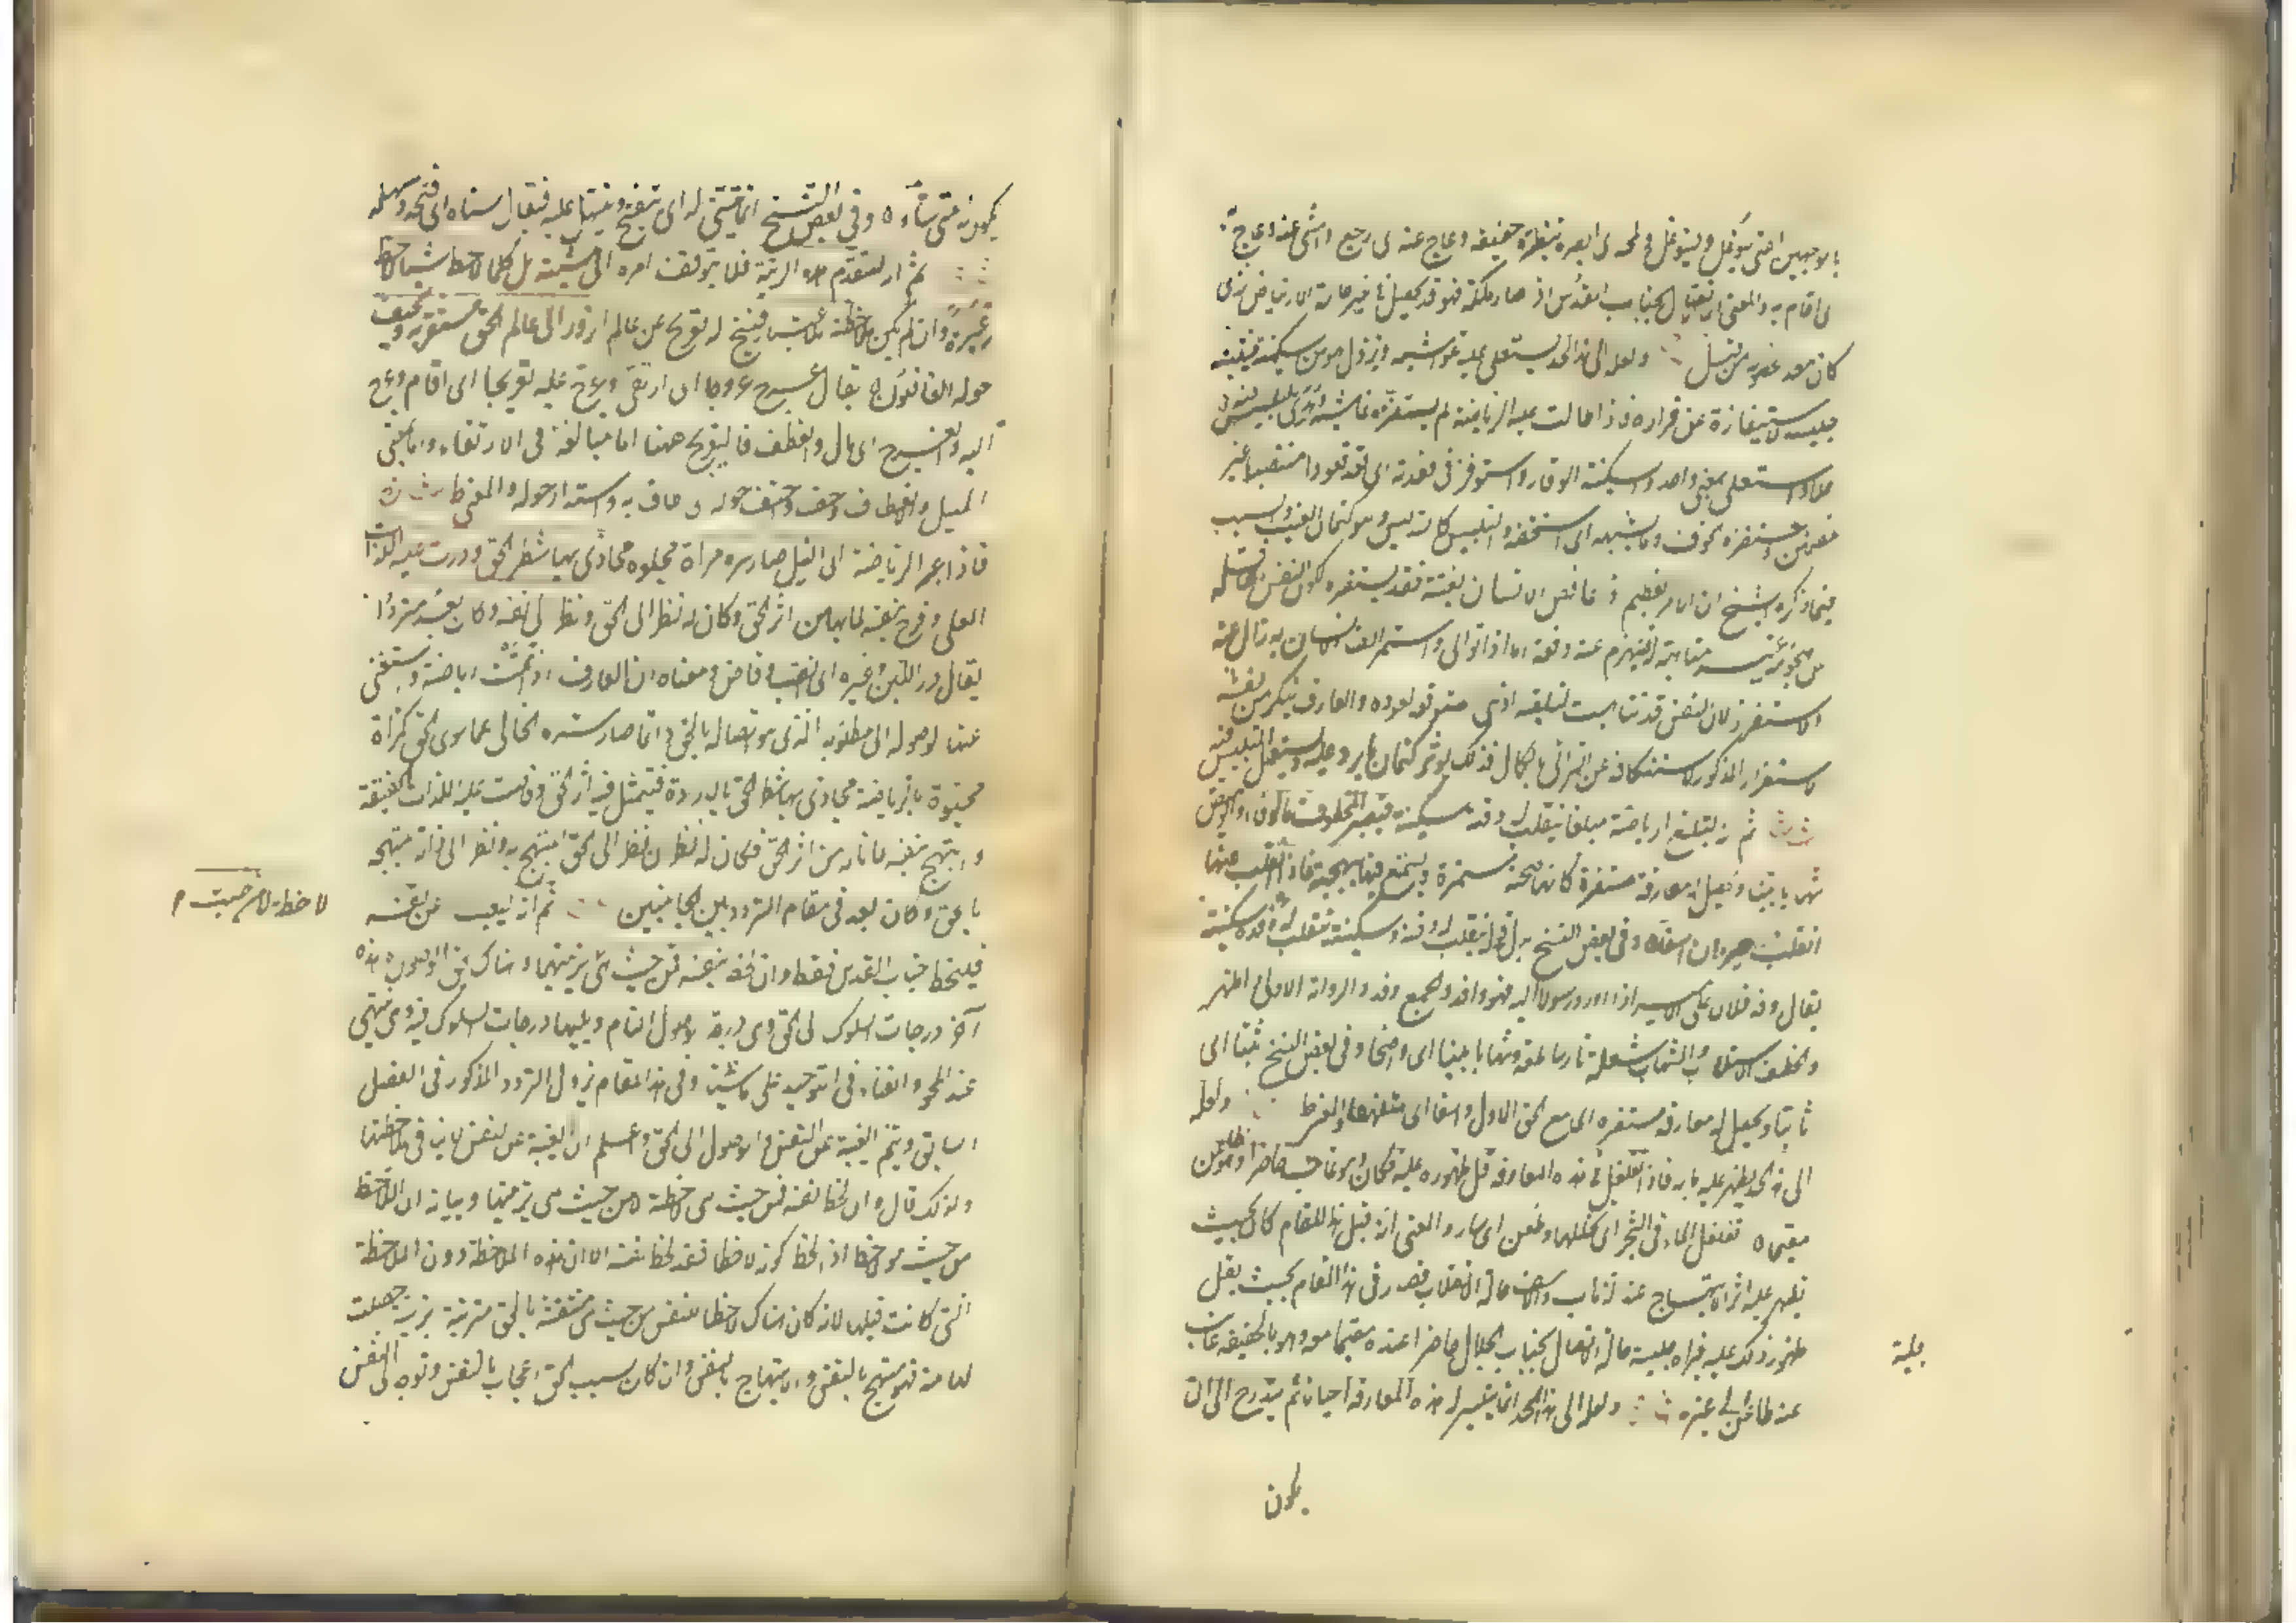 بالوجهين اى يتوغل وليتوغل ولمحه اى ابصره بنظرة خفيفة وعاج عنه اى رجع وانثنى عنه وعاج به
اى اقام به والمعنى ان الاتصال بجناب القدس اذا صار ملكة فهو قد يحصل فى غير حالة الارتياض الذى
كان معدا لحصوله من قبل ولعله الى هذا الحد يستعلى عليه غواشيه ويزول هو من سكينته فيتنبه
جليسه لاستيفازه عن قراره فاذا طالت عليه الرياضة لم يستفزه غاشية وهدى للتلبيس فيه
علا واستعلى بمعنى واحد والسكينة الوقار واستوفز فى قعدته اى قعد قعودا منتصبا غير
مطمئن واستفزه الخوف وما يشبهه اى استخفه والتلبيس كالتدليس وهو كتمان العيب والسبب
فيما ذكره الشيخ ان الامر العظيم اذا غافص الانسان بغتة فقد يستفزه لكون النفس غافلة
عن هجومه غير متأهبة له فينهزم عنه دفعة اما اذا توالى واستمر الف الانسان به زال عنه
الاستفزاز لان النفس قد تأهبت لتلقيه اذ هى متوقعة لعوده والعارف ينكر من نفسه
الاستفزاز المذكور لاستنكافه عن الترائى بالكمال فلذلك يؤثر كتمان ما يرد عليه ويستعمل التلبيس فيه
ثم انه لتبلغ به الرياضة مبلغا ينقلب له وقته سكينة فيصير المخطوف مألوفا والوميض
شهابا بينا ويحصل له معارفة مستقرة كانها صحبة مستمرة ويستمتع فيها ببهجته فاذا انقلب عنها
انقلب حيران اسفا وفى بعض النسخ بدل قوله ينقلب له وقته سكينة ينقلب له وفده سكينة
يقال وفد فلان على الامير اذا ورد رسولا اليه فهو وافد والجمع وفد والرواية الاولى اظهر
والخطف الاستلاب والشهاب شعلة نار ساطعة وشهابا بينا اى واضحا وفى بعض النسخ ثبتا اى
ثابتا ويحصل له معارفة مستقرة اى مع الحق الاول واسفا اى متلهفا ولعله
الى هذا الحد يظهر عليه ما به فاذا تغلغل فى هذه المعارفة قل ظهوره عليه فكان وهو غائب حاضرا وهو ظاعن
مقيما تغلغل الماء فى الشجر اى تخللها وظعن اى سار والمعنى انه قبل هذا المقام كان بحيث
يظهر عليه اثر الابتهاج عند الذهاب والاسف حالة الانقلاب فصار فى هذا المقام بحيث يقل
ظهور ذلك عليه فيراه جليسه حالة الاتصال بجناب الجلال حاضرا عنده مقيما معه وهو بالحقيقة غائب
عنه ظاعن الى غيره ولعله الى هذا الحد انما يتيسر له هذه المعارفة احيانا ثم يتدرج الى ان
يكون
يكون له متى شاء وفى بعض النسخ انما يتسنى له اى ينفتح ويتهيأ عليه فيقال سناه اى فتحه وسهله
ثم انه ليتقدم هذه الرتبة فلا يتوقف امره الى مشيته بل كلما لاحظ شيئا لاحظ
غيره وان لم يكن ملاحظته للاعتبار فيسنح له تعريج عن عالم الزور الى عالم الحق مستقر به ويحتف
حوله الغافلون يقال عرج عروجا اى ارتقى وعرج عليه تعريجا اى اقام وعرج
اليه وانعرج اى مال وانعطف فالتعريج ههنا اما مبالغة فى الارتقاء واما بمعنى
الميل والانعطاف وحف واحتف حوله اى طاف به واستدار حوله والمعنى ظ
فاذا عبر الرياضة الى النيل صار سره مرآة مجلوة محاذى بها شطر الحق ودرت عليه اللذات
العلى وفرح بنفسه لما بها من اثر الحق وكان له نظر الى الحق ونظر الى نفسه وكان بعد مترددا
يقال در اللبن وغيره اى انصب وفاض ومعناه ان العارف اذا تمت رياضته واستغنى
عنها لوصوله الى مطلوبه الذى هو اتصاله بالحق دائما صار سره الخالى عما سوى الحق كمرآة
مجلوة بالرياضة محاذى بها شطر الحق بالارادة فيتمثل فيه اثر الحق وفاضت عليه اللذات الحقيقة
وابتهج بنفسه لما ناله من اثر الحق فكان له نظران نظر الى الحق المبتهج به ونظر الى ذاته المبتهجة
بالحق وكان بعد فى مقام التردد بين الجانبين ثم انه ليغيب عن نفسه
فيلحظ جناب القدس فقط وان لحظ نفسه فمن حيث هى بزينتها وهناك يحق الوصول هذه
آخر درجات السلوك الى الحق وهى درجة الوصول التام ويليها درجات السلوك فيه وهى ينتهى
عند المحو والفناء فى التوحيد على ما سيأتى وفى هذا المقام يزول التردد المذكور فى الفصل
السابق ويتم الغيبة عن النفس والوصول الى الحق واعلم ان الغيبة عن النفس لا ينافى ملاحظتها
ولذلك قال وان لحظ نفسه فمن حيث هى لاحظة لا من حيث هى بزينتها وبيانه ان اللاحظ
من حيث هو لاحظ اذا لحظ كونه لاحظا فقد لحظ نفسه الا ان هذه الملاحظة دون الملاحظة
التى كانت قبلها لانه كان هناك لاحظا للنفس من حيث هى منتقشة بالحق متزينة بزينة حصلت
لها منه فهو مبتهج بالنفس والابتهاج بالنفس وان كان بسبب الحق اعجاب بالنفس وتوجه الى النفس